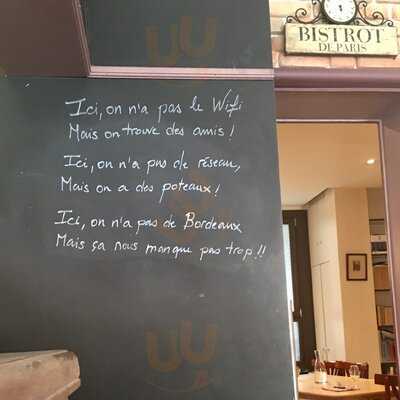 BISTROT
DE PARIS
Ici, on n'a pas le Wifi
Mais on trouve des amis !
Ici, on n'a pas de réseau,
Mais on a des poteaux !
Ici, on n'a pas de Bordeaux
Mais ça nous manque pas trop !!